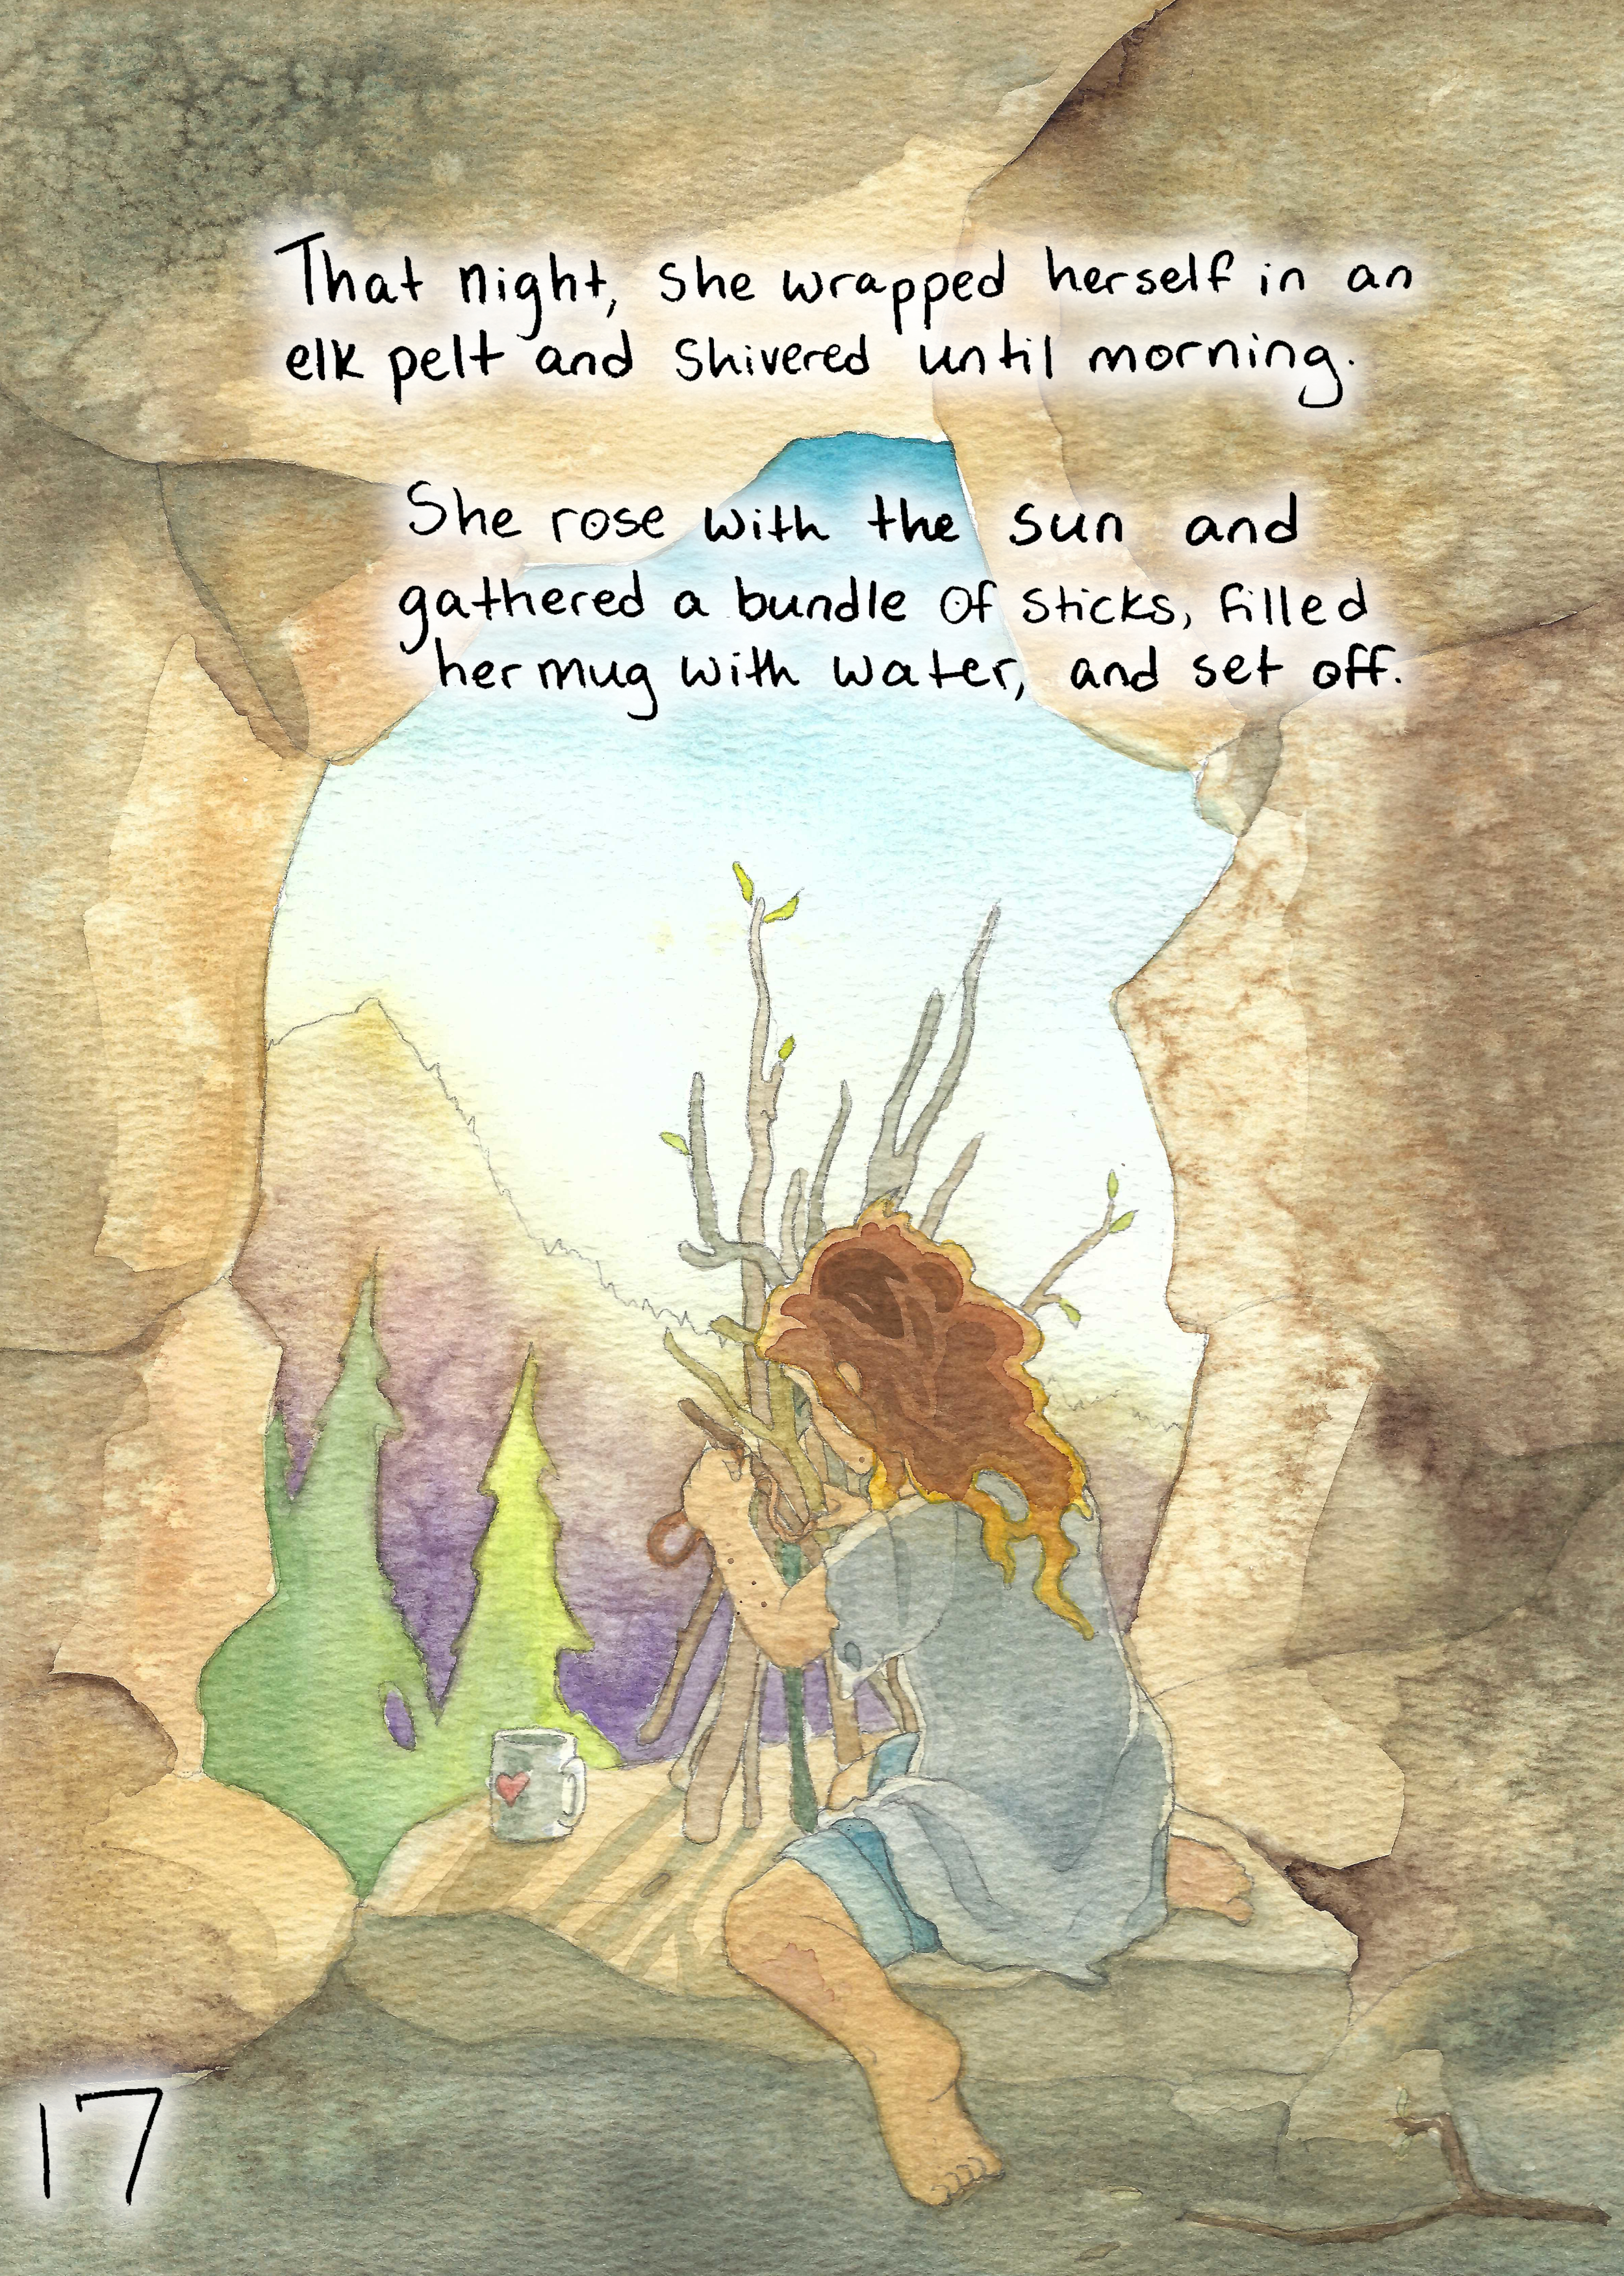 That night, she wrapped herself in an
elk pelt and shivered until morning.
She rose with the sun and
gathered a bundle of sticks, filled
her mug with water, and set off.
17